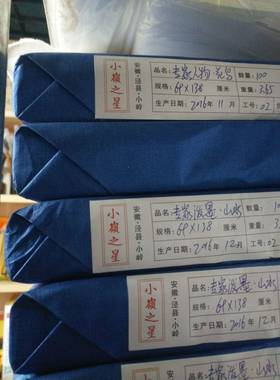 小嶺之星
安徽·泾县·小岭
品名: 专家人物·花鸟 数量: 100
规格: 69×138 厘米 重量: 3.65
生产日期: 2016年11月 工号: 02
小嶺之星
安徽·泾县·小岭
品名: 专家泼墨·山水
规格: 69×138 厘米 重量:
生产日期: 2016年12月 工号: 02
小嶺之星
安徽·泾县·小岭
品名: 专家泼墨·山水
规格: 69×138 厘米
生产日期: 2016年12月
品名: 专家泼墨·山水